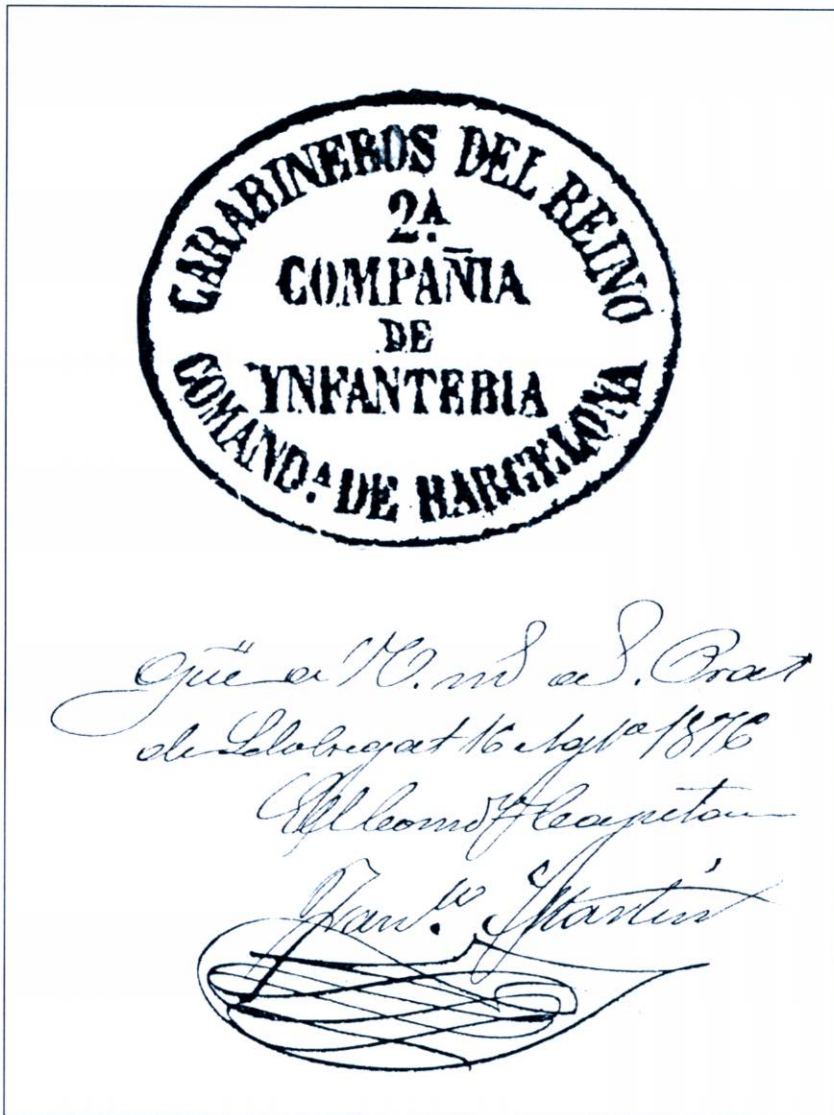 CARABINEROS DEL REINO
2A.
COMPAÑIA
DE
YNFANTERIA
COMAND.A DE BARCELONA
que a V. m.s a.s. Prat
de Llobregat 16 Agto 1876
El Comd.te Capitan
Fran.co Martin